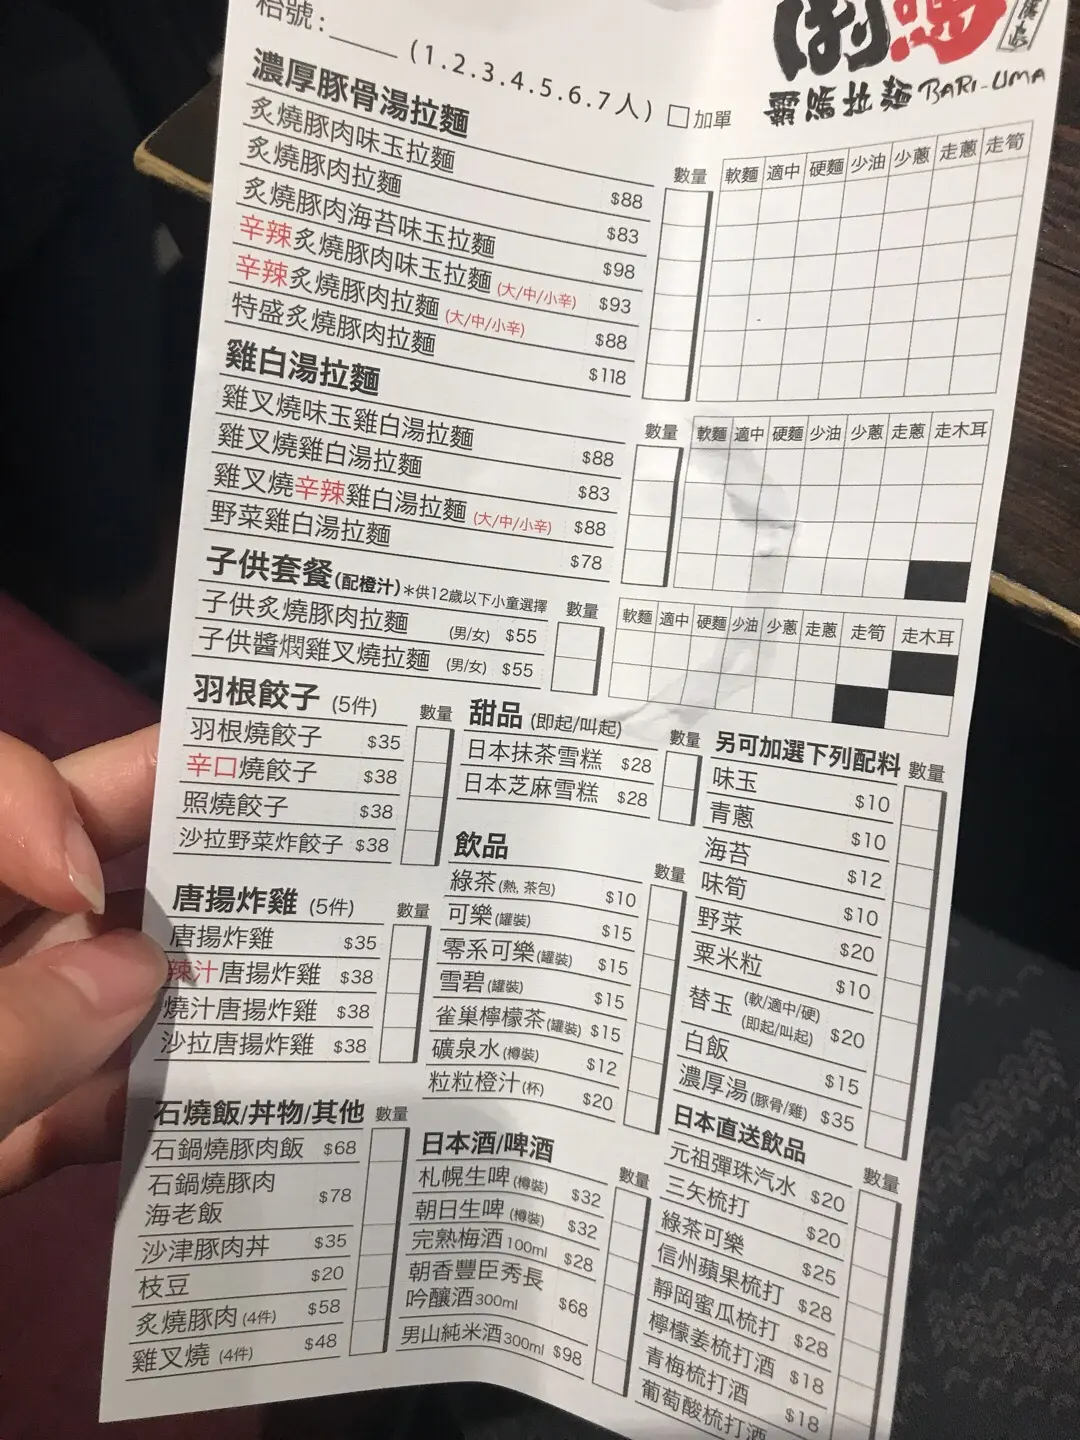 枱號:_____ (1.2.3.4.5.6.7人) □加單
霸嗎拉麵 BARI-UMA
濃厚豚骨湯拉麵 數量 軟麵 適中 硬麵 少油 少蔥 走蔥 走筍
炙燒豚肉味玉拉麵 $88
炙燒豚肉拉麵 $83
炙燒豚肉海苔味玉拉麵 $98
辛辣炙燒豚肉味玉拉麵 (大/中/小辛) $93
辛辣炙燒豚肉拉麵 (大/中/小辛) $88
特盛炙燒豚肉拉麵 $118
雞白湯拉麵 數量 軟麵 適中 硬麵 少油 少蔥 走蔥 走木耳
雞叉燒味玉雞白湯拉麵 $88
雞叉燒雞白湯拉麵 $83
雞叉燒辛辣雞白湯拉麵 (大/中/小辛) $88
野菜雞白湯拉麵 $78
子供套餐(配橙汁)*供12歲以下小童選擇 數量 軟麵 適中 硬麵 少油 少蔥 走蔥 走筍 走木耳
子供炙燒豚肉拉麵 (男/女) $55
子供醬燜雞叉燒拉麵 (男/女) $55
羽根餃子 (5件) 數量
羽根燒餃子 $35
辛口燒餃子 $38
照燒餃子 $38
沙拉野菜炸餃子 $38
唐揚炸雞 (5件) 數量
唐揚炸雞 $35
辣汁唐揚炸雞 $38
燒汁唐揚炸雞 $38
沙拉唐揚炸雞 $38
石燒飯/丼物/其他 數量
石鍋燒豚肉飯 $68
石鍋燒豚肉
海老飯 $78
沙津豚肉丼 $35
枝豆 $20
炙燒豚肉 (4件) $58
雞叉燒 (4件) $48
甜品 (即起/叫起) 數量
日本抹茶雪糕 $28
日本芝麻雪糕 $28
飲品 數量
綠茶(熱, 茶包) $10
可樂(罐裝) $15
零系可樂(罐裝) $15
雪碧(罐裝) $15
雀巢檸檬茶(罐裝) $15
礦泉水(樽裝) $12
粒粒橙汁(杯) $20
日本酒/啤酒 數量
札幌生啤(樽裝) $32
朝日生啤(樽裝) $32
完熟梅酒100ml $28
朝香豐臣秀長
吟釀酒300ml $68
男山純米酒300ml $98
另可加選下列配料 數量
味玉 $10
青蔥 $10
海苔 $12
味筍 $10
野菜 $20
粟米粒 $10
替玉 (軟/適中/硬)
(即起/叫起) $20
白飯 $15
濃厚湯(豚骨/雞) $35
日本直送飲品 數量
元祖彈珠汽水 $20
三矢梳打 $20
綠茶可樂 $25
信州蘋果梳打 $28
靜岡蜜瓜梳打 $28
檸檬姜梳打酒 $18
青梅梳打酒 $18
葡萄酸梳打酒